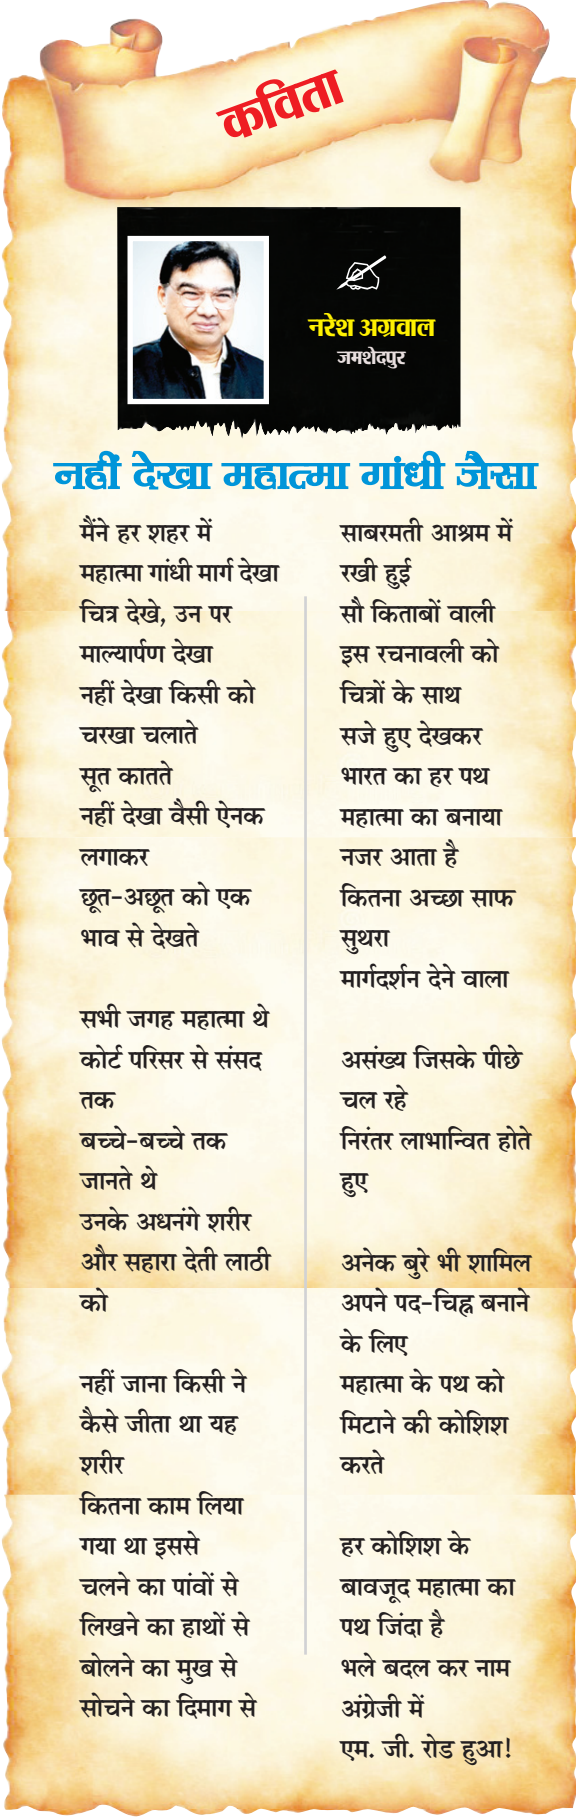 कविता
नरेश अग्रवाल
जमशेदपुर
नहीं देखा महात्मा गांधी जैसा
मैंने हर शहर में
महात्मा गांधी मार्ग देखा
चित्र देखे, उन पर
माल्यार्पण देखा
नहीं देखा किसी को
चरखा चलाते
सूत कातते
नहीं देखा वैसी ऐनक
लगाकर
छूत-अछूत को एक
भाव से देखते
सभी जगह महात्मा थे
कोर्ट परिसर से संसद
तक
बच्चे-बच्चे तक
जानते थे
उनके अधनंगे शरीर
और सहारा देती लाठी
को
नहीं जाना किसी ने
कैसे जीता था यह
शरीर
कितना काम लिया
गया था इससे
चलने का पांवों से
लिखने का हाथों से
बोलने का मुख से
सोचने का दिमाग से
साबरमती आश्रम में
रखी हुई
सौ किताबों वाली
इस रचनावली को
चित्रों के साथ
सजे हुए देखकर
भारत का हर पथ
महात्मा का बनाया
नजर आता है
कितना अच्छा साफ
सुथरा
मार्गदर्शन देने वाला
असंख्य जिसके पीछे
चल रहे
निरंतर लाभान्वित होते
हुए
अनेक बुरे भी शामिल
अपने पद-चिह्न बनाने
के लिए
महात्मा के पथ को
मिटाने की कोशिश
करते
हर कोशिश के
बावजूद महात्मा का
पथ जिंदा है
भले बदल कर नाम
अंग्रेजी में
एम. जी. रोड हुआ!